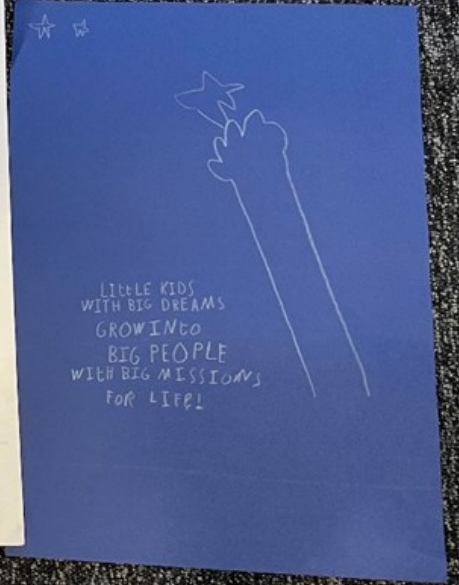 LIttLE KIDS
WITH BIG DREAMS
GROW INto
BIG PEOPLE
WITH BIG MISSIONS
FOR LIFE!